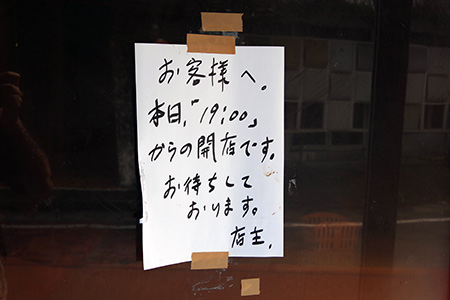 お客様へ。
本日、「19:00」
からの開店です。
お待ちして
おります。
店主.